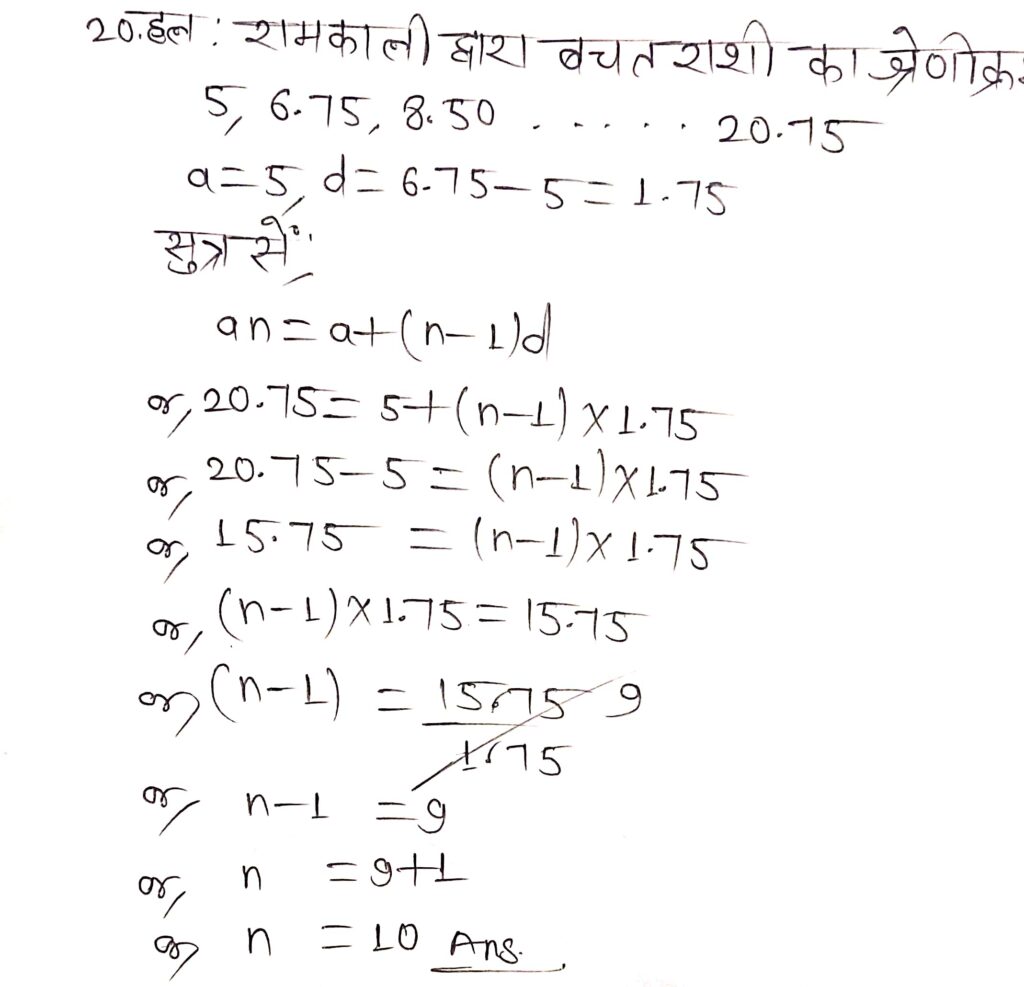 20.हल : रामकाली द्वारा बचत राशी का श्रेणीक्र
5, 6.75, 8.50 . . . . . 20.75
a=5, d= 6.75-5=1.75
सुत्र से:
an=a+(n-1)d
or, 20.75= 5+(n-1)×1.75
or, 20.75-5= (n-1)×1.75
or, 15.75 = (n-1)×1.75
or, (n-1)×1.75=15.75
or, (n-1) = 15.75 9
1.75
or, n-1 =9
or, n =9+1
or, n =10 Ans.